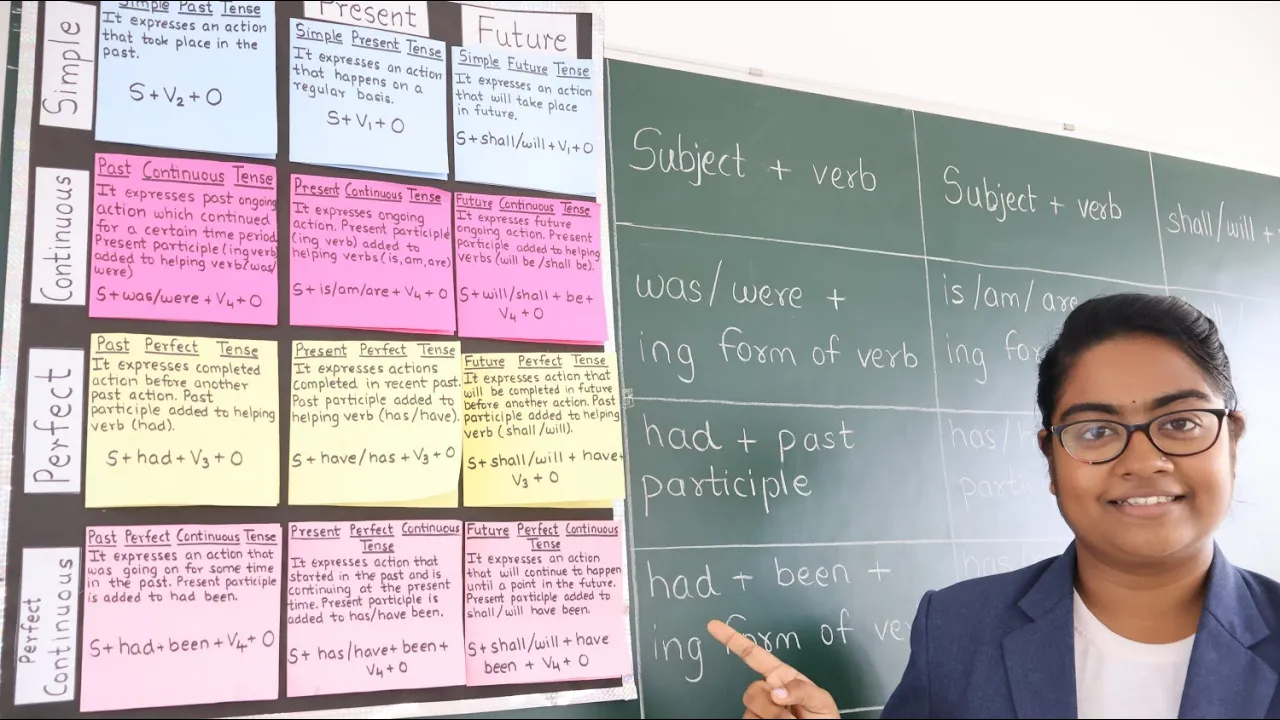 Simple
Simple Past Tense
It expresses an action
that took place in the
past.
S+V₂+O
Present
Simple Present Tense
It expresses an action
that happens on a
regular basis.
S+V₁+O
Future
Simple Future Tense
It expresses an action
that will take place
in future.
S+shall/will+V₁+O
Continuous
Past Continuous Tense
It expresses past ongoing
action which continued
for a certain time period.
Present participle (ing verb)
added to helping verb (was/
were)
S+was/were+V₄+O
Present Continuous Tense
It expresses ongoing
action. Present participle
(ing verb) added to
helping verbs (is, am, are)
S+is/am/are+V₄+O
Future Continuous Tense
It expresses future
ongoing action. Present
participle added to helping
verbs (will be/shall be).
S+will/shall+be+
V₄+O
Perfect
Past Perfect Tense
It expresses completed
action before another
past action. Past
participle added to helping
verb (had).
S+had+V₃+O
Present Perfect Tense
It expresses actions
completed in recent past.
Past participle added to
helping verb (has/have).
S+have/has+V₃+O
Future Perfect Tense
It expresses action that
will be completed in future
before another action. Past
participle added to helping
verb (shall/will).
S+shall/will+have+
V₃+O
Perfect
Continuous
Past Perfect Continuous Tense
It expresses an action that
was going on for some time
in the past. Present participle
is added to had been.
S+had+been+V₄+O
Present Perfect Continuous
Tense
It expresses action that
started in the past and is
continuing at the present
time. Present participle is
added to has/have been.
S+has/have+been+
V₄+O
Future Perfect Continuous
Tense
It expresses an action
that will continue to happen
until a point in the future.
Present participle added to
shall/will have been.
S+shall/will+have
been+V₄+O
Subject + verb
Subject + verb
shall/will +
was/were +
ing form of verb
is/am/are
ing
had + past
participle
has/
had + been +
ing form of
has